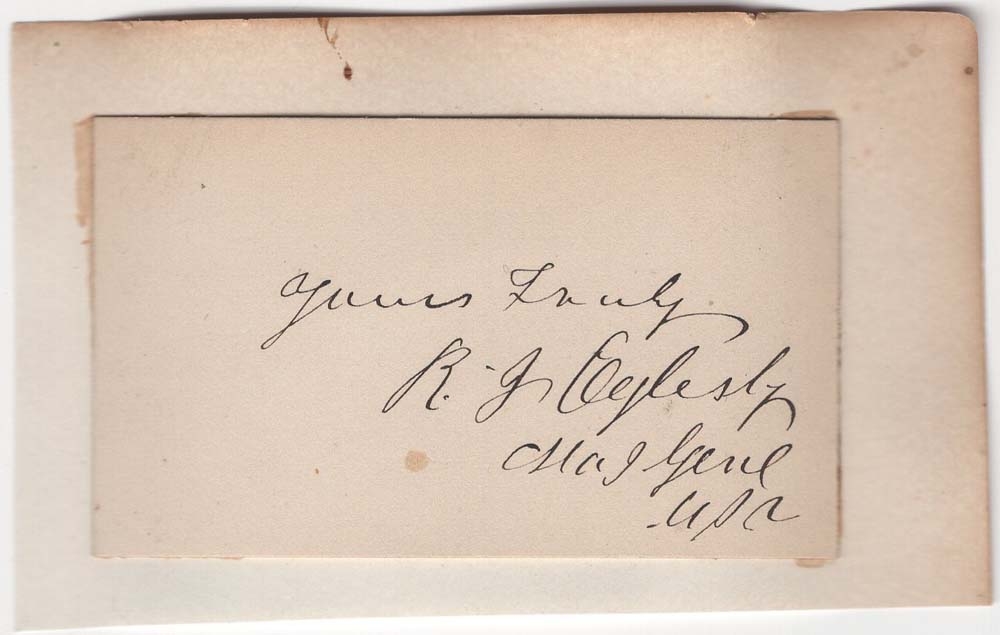 Yours Truly
R. J Oglesby
Maj Genl
USV